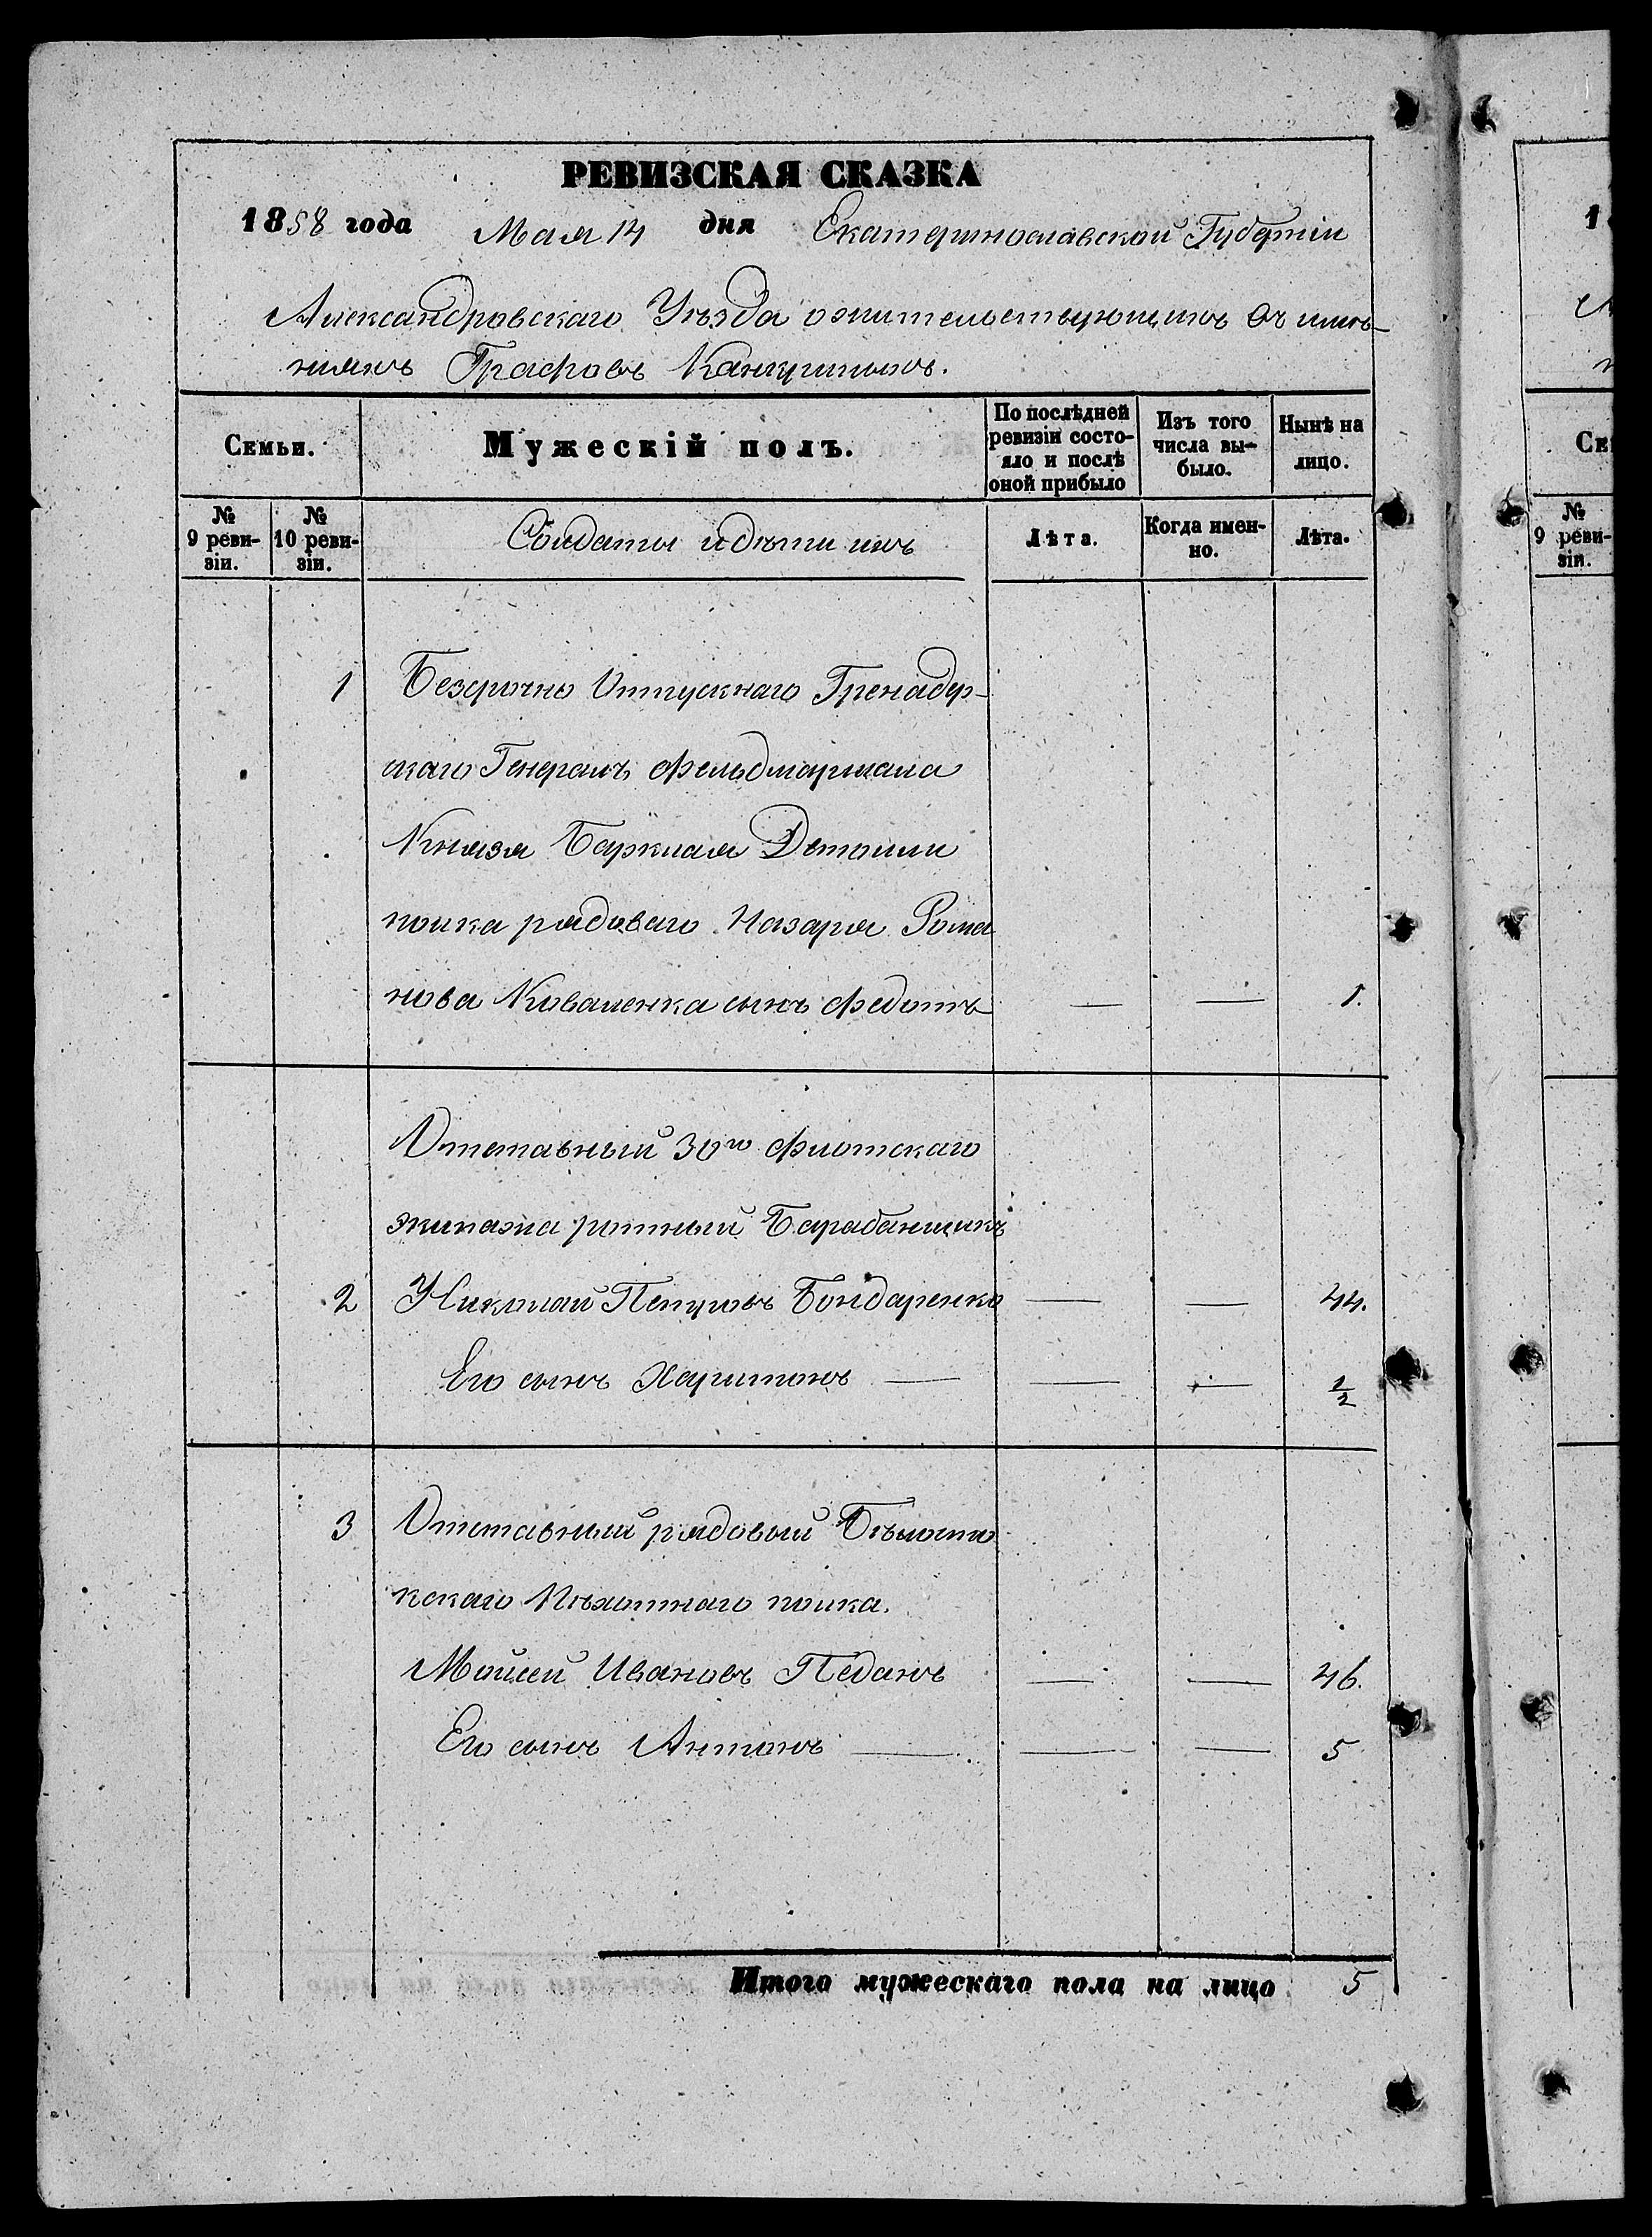 РЕВИЗСКАЯ СКАЗКА
1858 года Мая 14 дня Екатеринославской Губерніи
Александровскаго Уѣзда о жительствующихъ въ имѣ-
ніяхъ Графовъ Канкриныхъ.
Семьи.
Мужескій полъ.
По послѣдней ревизіи состо-
яло и послѣ оной прибыло
Изъ того числа вы-
было.
Нынѣ на лицо.
№ 9 реви-
зіи.
№ 10 реви-
зіи.
Солдаты и дѣти ихъ
Лѣта.
Когда имен-
но.
Лѣта.
1 Безсрочно Отпускнаго Гренадер-
скаго Генералъ Фельдмаршала
Князя Барклая Детолли
полка рядоваго Назарія Рома
нова Коваленка сынъ Федотъ — — 1.
Отставный 30го Флотскаго
экипажа ротный Барабанщикъ
2 Николай Петровъ Бондаренко — — 44.
Его сынъ Харитонъ — — — 1/2
3 Отставный рядовый Бѣлосто
кскаго Пѣхотнаго полка.
Мойсей Ивановъ Педанъ — — 46.
Его сынъ Антонъ — — — 5
Итого мужескаго пола на лицо 5
1
Се
№
9 реви-
зіи.